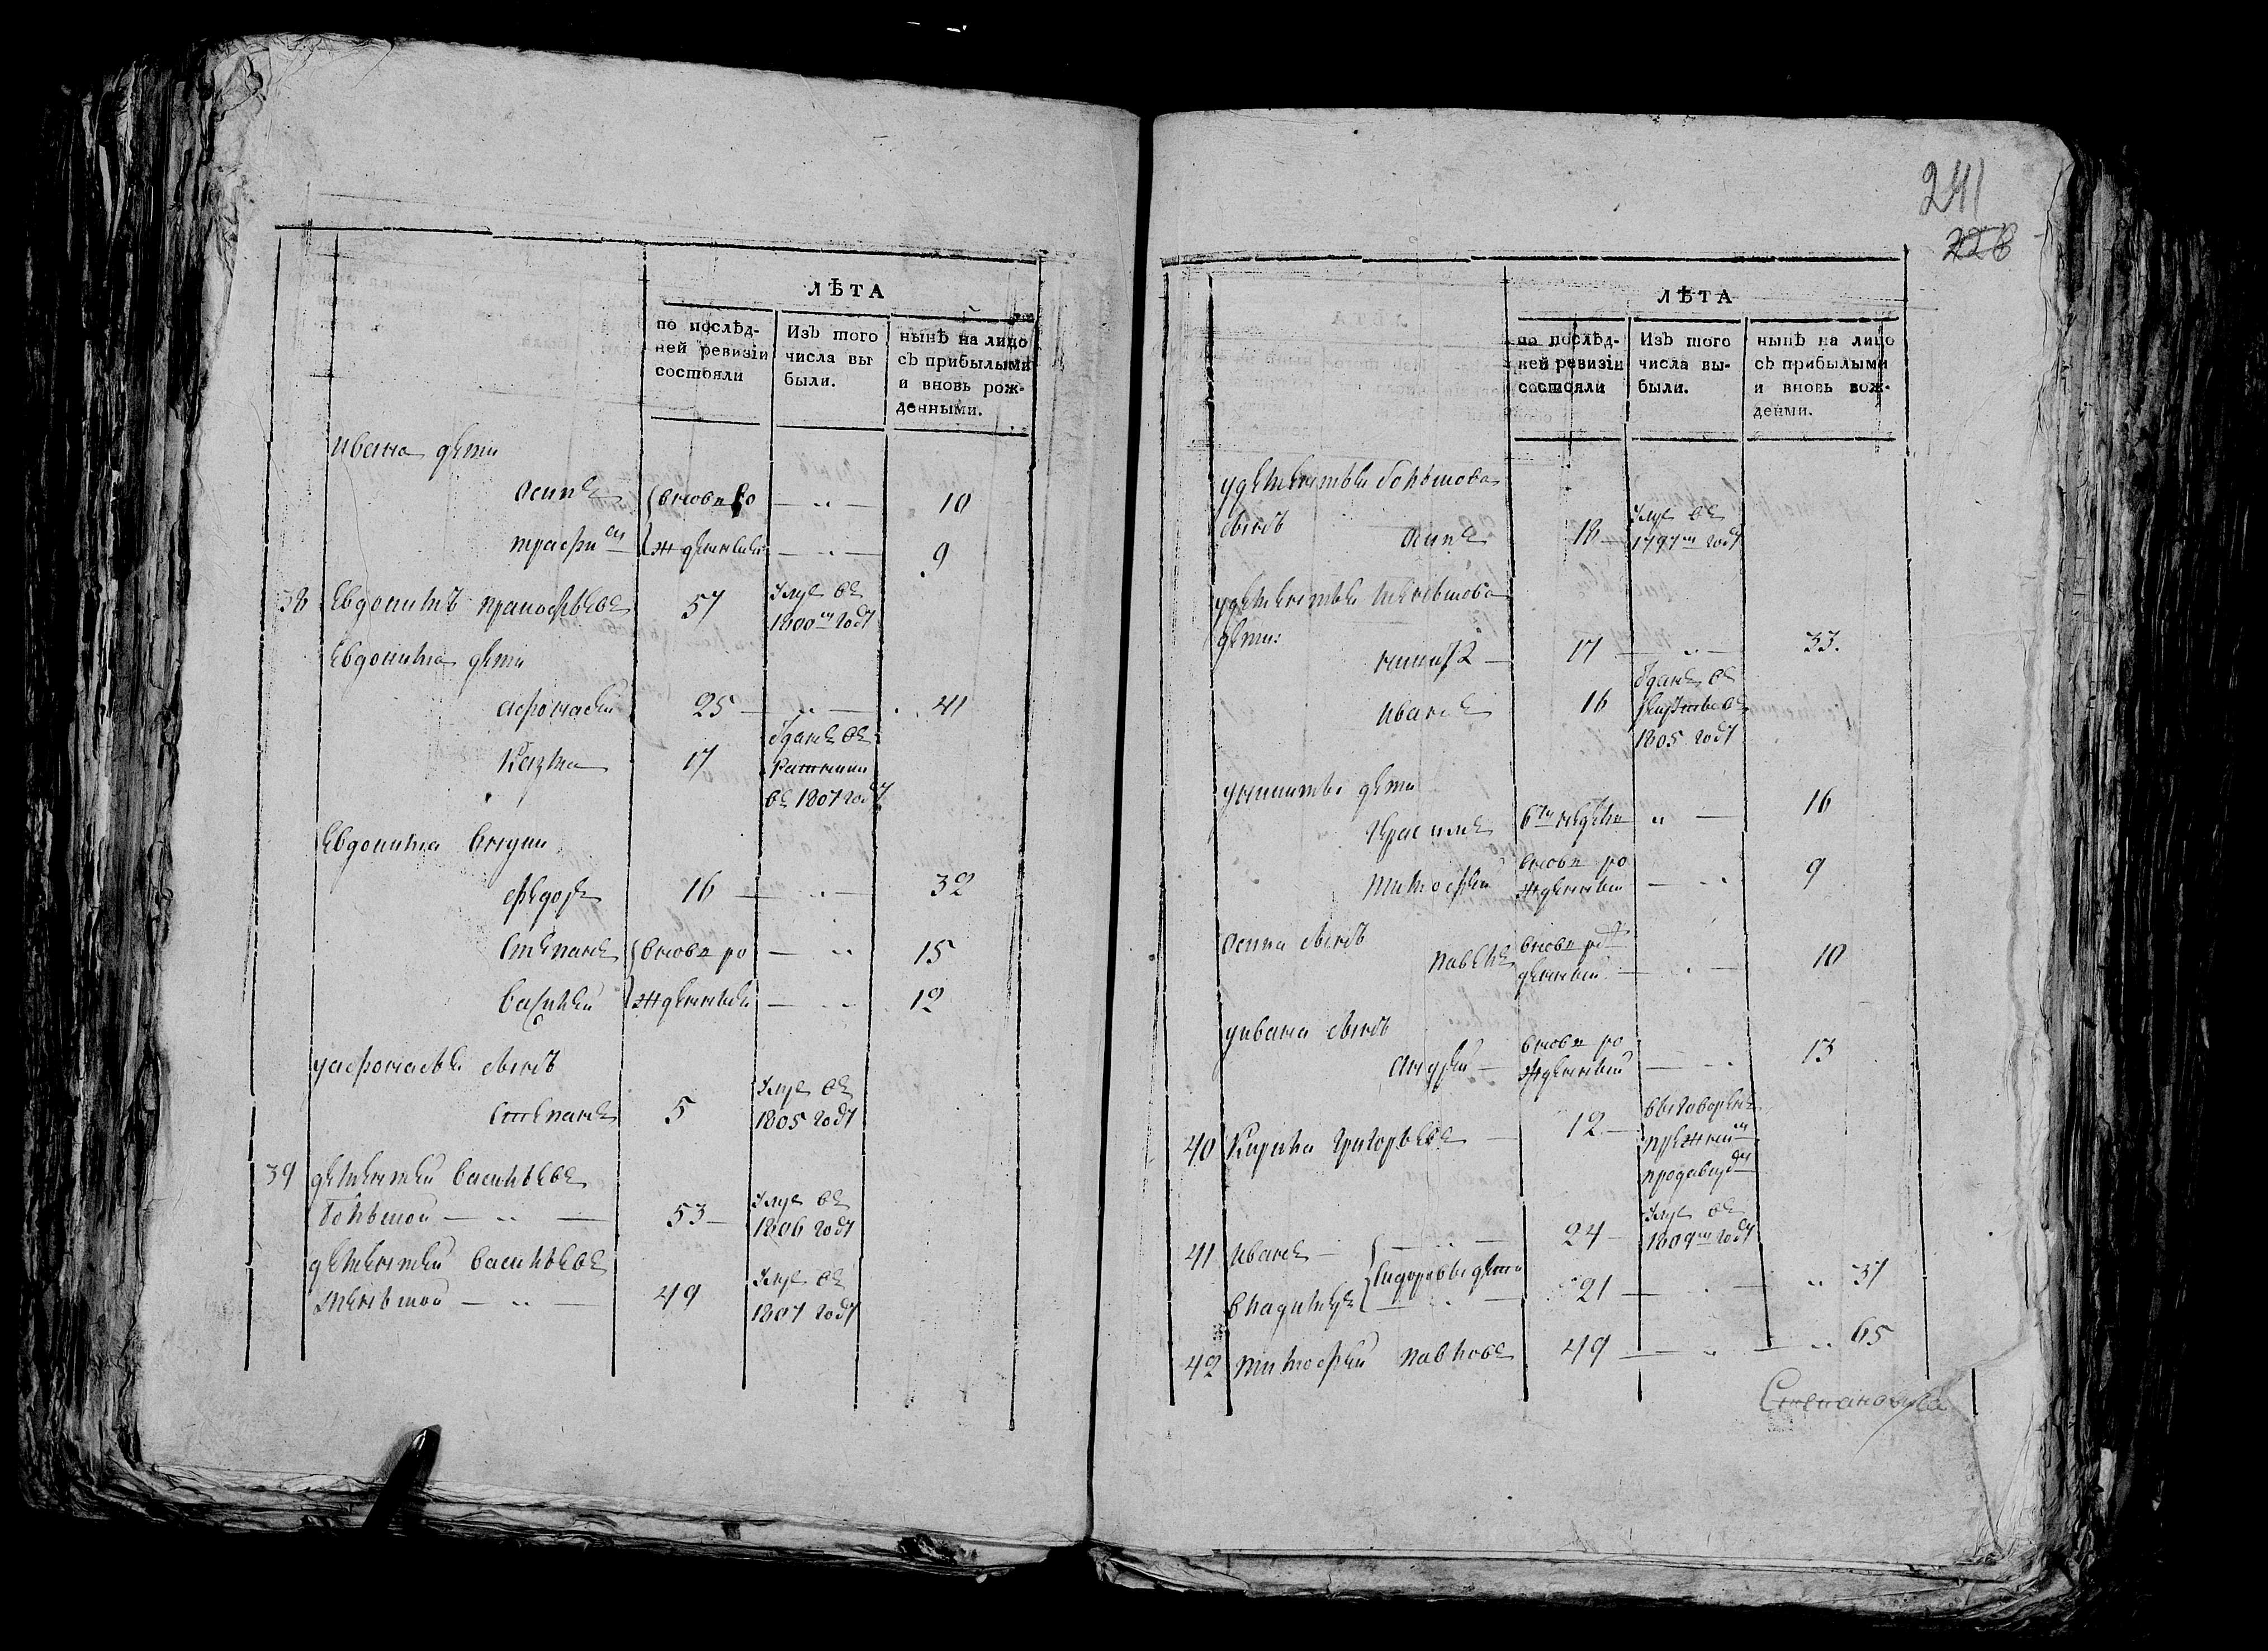 ЛѢТА
по послѣд-
ней ревизіи
состояли
Изъ того
числа вы
были.
нынѣ на лицо
съ прибылыми
и вновь рож-
денными.
ивана дети
осипъ вновь ро — „ — 10
жденныи — „ — 9
38 Евдокимъ 57 умре въ
1800м году
Евдокима дети
афонасей 25 — „ — 41
Казма 17 въ
въ 1807 году
Евдокима внуки
Федоръ 16 — „ — 32
Степанъ вновь ро — „ 15
василей жденныи — „ 12
у афонасья сынъ
Степанъ 5 умре въ
1805 году
39 дементей васильевъ
большой — „ — 53 умре въ
1806 году
дементей васильевъ
меньшой — „ — 49 умре въ
1807 году
241
ЛѢТА
по послѣд-
ней ревизіи
состояли
Изъ того
числа вы-
были.
нынѣ на лицо
съ прибылыми
и вновь рож-
деным.
у дементья большова
сынъ осипъ 18 умре въ
1797м году
у дементья меньшова
дети:
никита 17 — „ — 33.
иванъ 16 въ
1805 году
у никиты дети
герасимъ „ — 16
тимофей вновь ро
жденныи — „ 9
осипа сынъ
павелъ вновь рож
денныи — „ — 10
у ивана сынъ
андрей — вновь ро
жденныи — „ 13
40 Кирила григорьевъ — 12 —
41 иванъ — „ — 24 — умре въ
1809м году
сидоровы дети
владимеръ — „ — 21 — „ 37
42 тимофей павловъ 49 — „ — „ 65